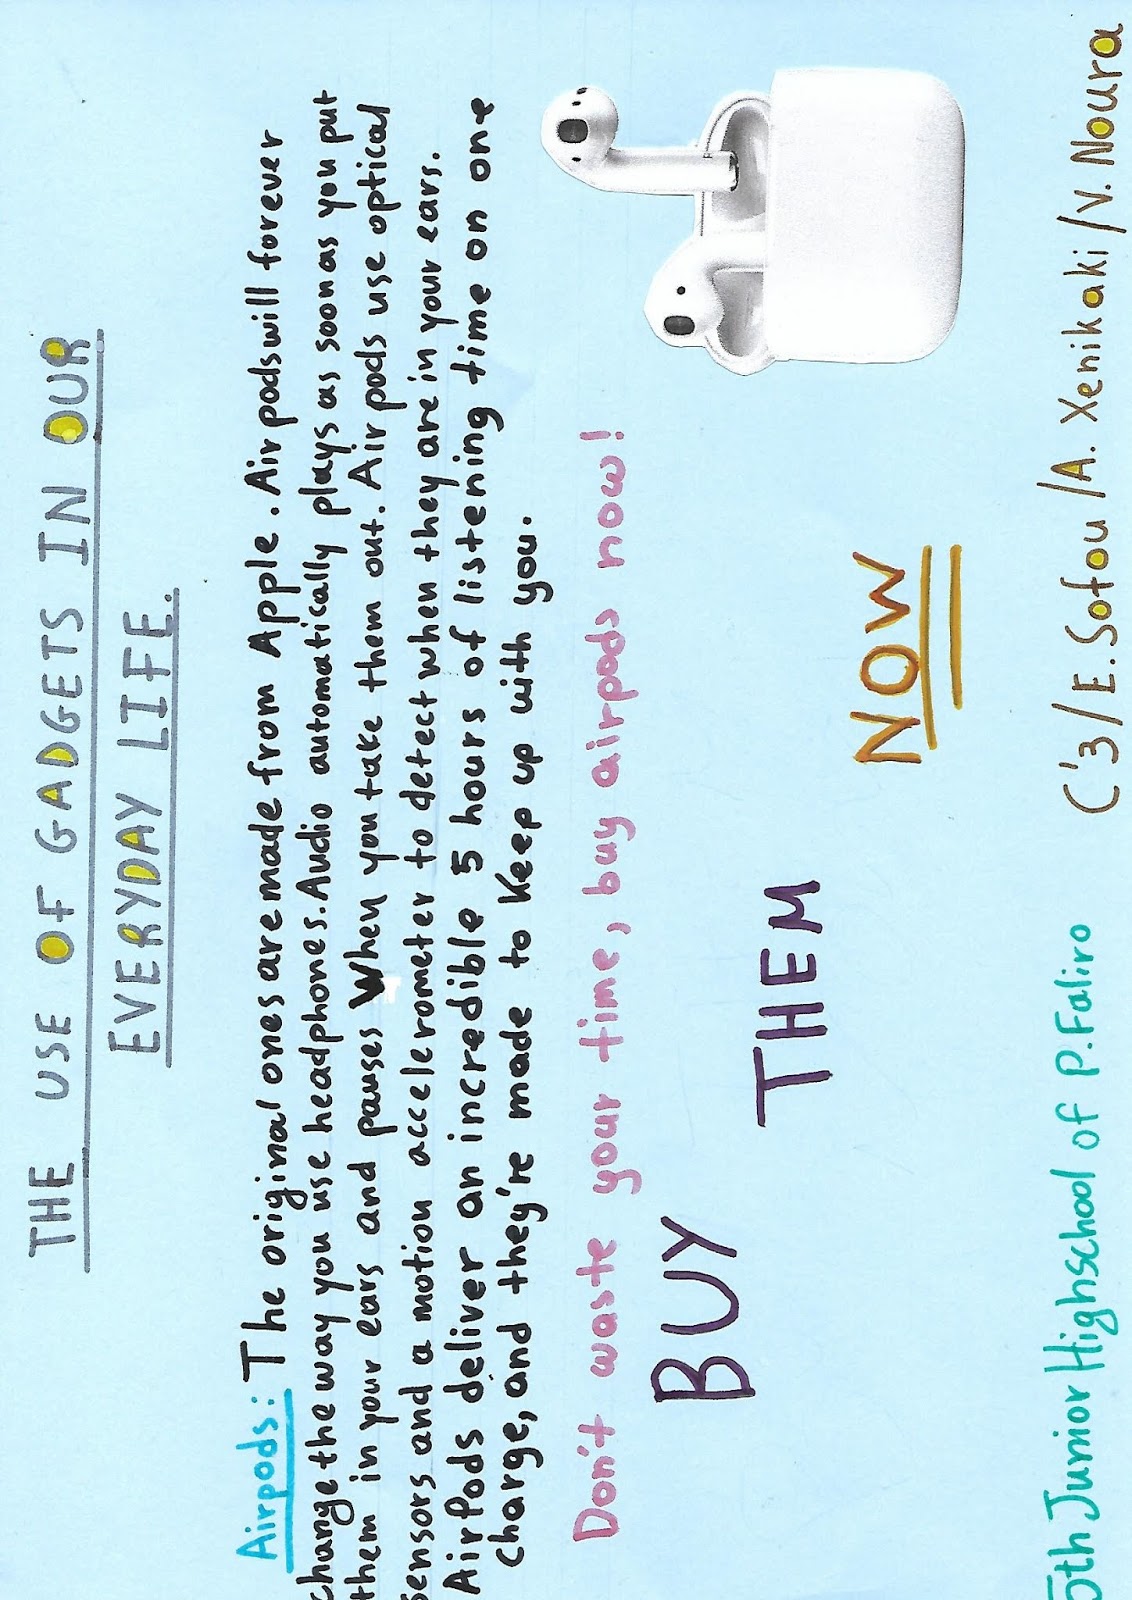 THE USE OF GADGETS IN OUR
EVERYDAY LIFE.
Airpods: The original ones are made from Apple. Airpods will forever
change the way you use headphones. Audio automatically plays as soon as you put
them in your ears and pauses When you take them out. Airpods use optical
sensors and a motion accelerometer to detect when they are in your ears.
AirPods deliver an incredible 5 hours of listening time on one
charge, and they're made to keep up with you.
Don't waste your time, buy airpods now!
BUY
THEM
NOW
5th Junior Highschool of P.Faliro
C'3/E.Sofou/A. Xenikaki/V. Noura